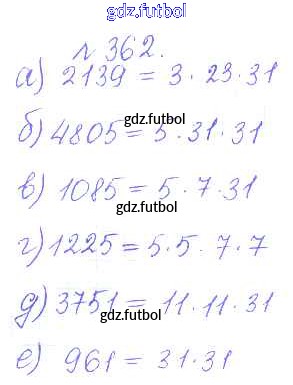 gdz.futbol
№ 362.
а) 2139 = 3 · 23 · 31
gdz.futbol
б) 4805 = 5 · 31 · 31
gdz.futbol
в) 1085 = 5 · 7 · 31
gdz.futbol
г) 1225 = 5 · 5 · 7 · 7
gdz.futbol
д) 3751 = 11 · 11 · 31
gdz.futbol
е) 961 = 31 · 31